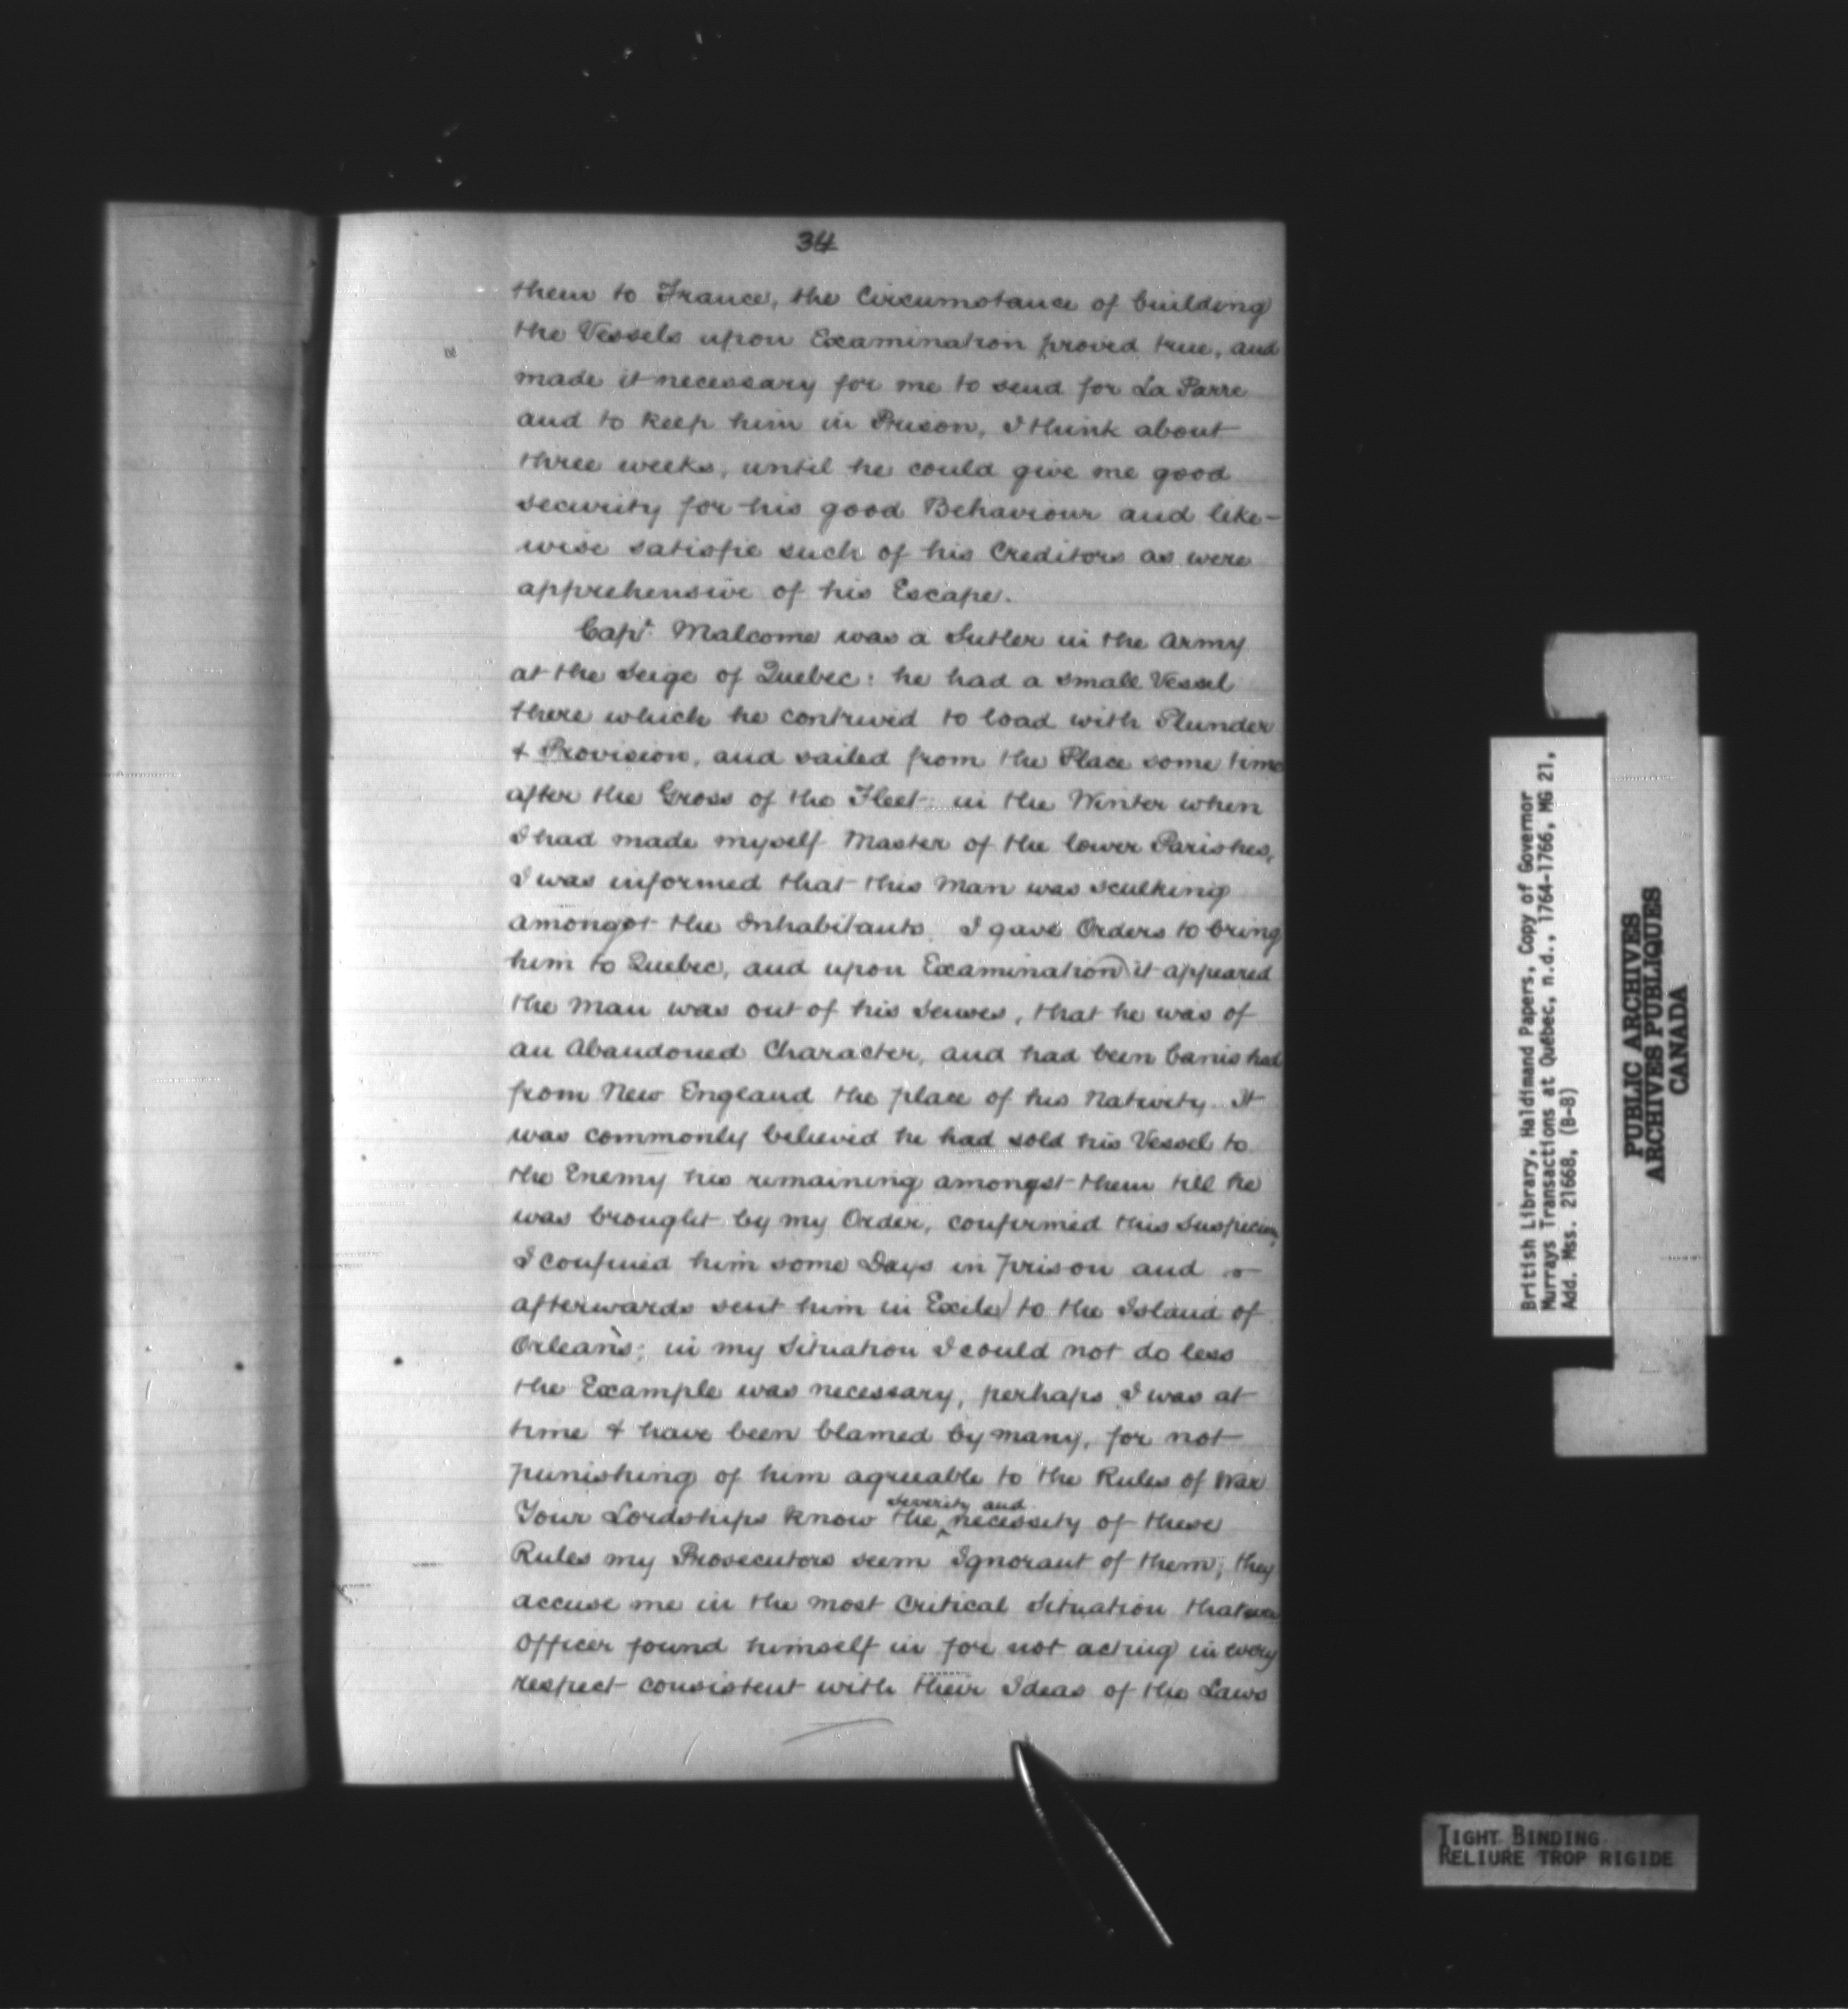 34
them to France, the Circumstance of building
the Vessels upon Examination proved true, and
made it necessary for me to send for La Parre
and to keep him in Prison, I think about
three weeks, until he could give me good
security for his good Behaviour and like-
wise satisfie such of his Creditors as were
apprehensive of his Escape.
Capt. Malcome was a Sutler in the Army
at the Seige of Quebec: he had a small Vessel
there which he contrived to load with Plunder
& Provision, and sailed from the Place some time
after the Gross of the Fleet: in the Winter when
I had made myself Master of the lower Parishes,
I was informed that this Man was sculking
amongst the Inhabitants. I gave Orders to bring
him to Quebec, and upon Examination it appeared
the Man was out of his Senses, that he was of
an Abandoned Character, and had been banished
from New England the place of his Nativity. It
was commonly believed he had sold his Vessel to
the Enemy his remaining amongst them till he
was brought by my Order, confirmed this Suspicion,
I confined him some Days in prison and
afterwards sent him in Exile to the Island of
Orleans; in my Situation I could not do less
the Example was necessary, perhaps I was at
time & have been blamed by many, for not
punishing of him agreeable to the Rules of War
Your Lordships know the severity and necessity of these
Rules my Prosecutors seem Ignorant of them; they
accuse me in the most Critical Situation that ever
Officer found himself in for not acting in every
respect consistent with their Ideas of the Laws
British Library, Haldimand Papers, Copy of Governor
Murrays Transactions at Québec, n.d., 1764-1766, MG 21,
Add. Mss. 21668, (B-8)
PUBLIC ARCHIVES
ARCHIVES PUBLIQUES
CANADA
TIGHT BINDING
RELIURE TROP RIGIDE